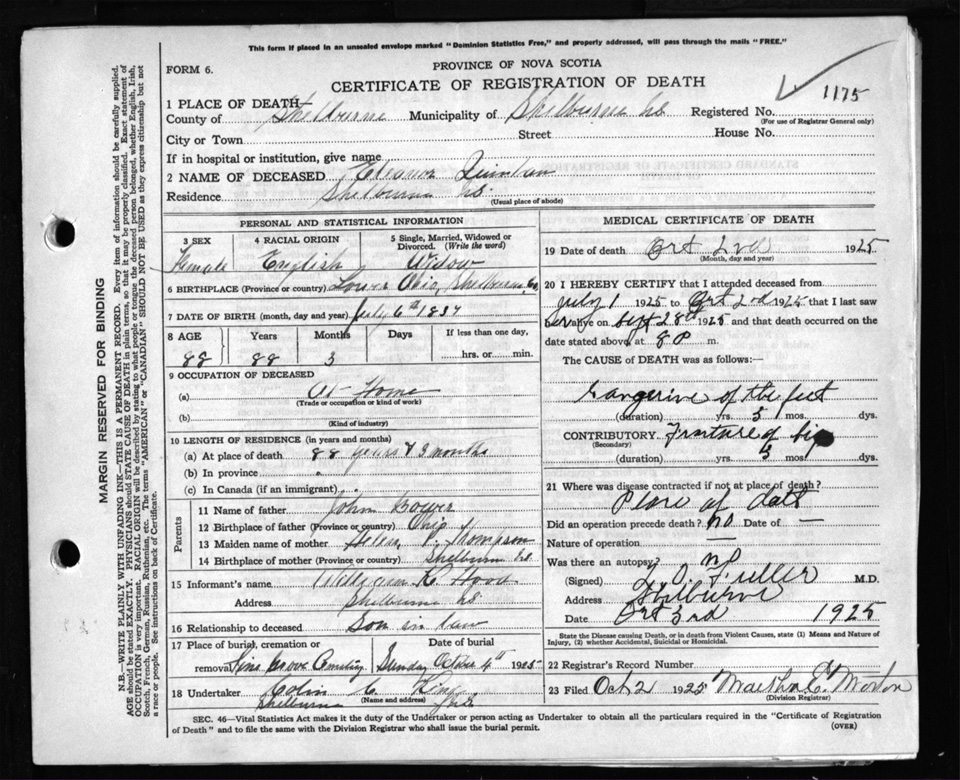 This form if placed in an unsealed envelope marked "Dominion Statistics Free," and properly addressed, will pass through the mails "FREE."
FORM 6.
PROVINCE OF NOVA SCOTIA
CERTIFICATE OF REGISTRATION OF DEATH
1175
1 PLACE OF DEATH
County of Shelburne Municipality of Shelburne NS Registered No.
(For use of Registrar General only)
City or Town Street House No.
If in hospital or institution, give name
2 NAME OF DECEASED Eleanor
Residence Shelburne NS
(Usual place of abode)
PERSONAL AND STATISTICAL INFORMATION
3 SEX 4 RACIAL ORIGIN 5 Single, Married, Widowed or Divorced. (Write the word)
Female English Widow
6 BIRTHPLACE (Province or country) Lower Ohio, Shelburne, Co
7 DATE OF BIRTH (month, day and year) July 6th 1837
8 AGE Years Months Days If less than one day,
88 88 3 hrs. or min.
9 OCCUPATION OF DECEASED
(a) At Home
(Trade or occupation or kind of work)
(b)
(Kind of industry)
10 LENGTH OF RESIDENCE (in years and months)
(a) At place of death 88 years & 3 months
(b) In province "
(c) In Canada (if an immigrant)
Parents
11 Name of father John Bower
12 Birthplace of father (Province or country) Ohio
13 Maiden name of mother Thompson
14 Birthplace of mother (Province or country) Shelburne NS
15 Informant's name Hood
Address Shelburne NS
16 Relationship to deceased Son in law
17 Place of burial, cremation or removal Date of burial
Pine Grove Cemetery Sunday 4th 1925
18 Undertaker Colin C. King
(Name and address)
Shelburne NS
MEDICAL CERTIFICATE OF DEATH
19 Date of death Oct 2nd 1925
(Month, day and year)
20 I HEREBY CERTIFY that I attended deceased from
July 1 1925 to Oct 2nd 1925 that I last saw
her alive on Sept 28th 1925 and that death occurred on the
date stated above, at 8 P m.
The CAUSE of DEATH was as follows:
Gangerine of the feet
(duration) yrs. 3 mos. dys.
CONTRIBUTORY. Fracture of hip
(Secondary)
(duration) yrs. 3 mos. dys.
21 Where was disease contracted if not at place of death?
Place of death
Did an operation precede death? no Date of —
Nature of operation —
Was there an autopsy? no
(Signed) Fuller M.D.
Address Shelburne
Date Oct 3rd 1925
State the Disease causing Death, or in death from Violent Causes, state (1) Means and Nature of Injury, (2) whether Accidental, Suicidal or Homicidal.
22 Registrar's Record Number
23 Filed Oct 2 1925 Morton
(Division Registrar)
SEC. 46—Vital Statistics Act makes it the duty of the Undertaker or person acting as Undertaker to obtain all the particulars required in the "Certificate of Registration
of Death" and to file the same with the Division Registrar who shall issue the burial permit.
(OVER)
MARGIN RESERVED FOR BINDING
N.B.—WRITE PLAINLY WITH UNFADING INK—THIS IS A PERMANENT RECORD. Every item of information should be carefully supplied.
AGE should be stated EXACTLY. PHYSICIANS should STATE CAUSE OF DEATH in plain terms, so that it may be properly classified. Exact statement of
OCCUPATION is very important. RACIAL ORIGIN will be described by stating to what people or tongue the deceased person belonged, whether English, Irish,
Scotch, French, German, Russian, Ruthenian, etc. The terms "AMERICAN" or "CANADIAN" SHOULD NOT BE USED as they express citizenship but not
a race or people. See instructions on back of Certificate.